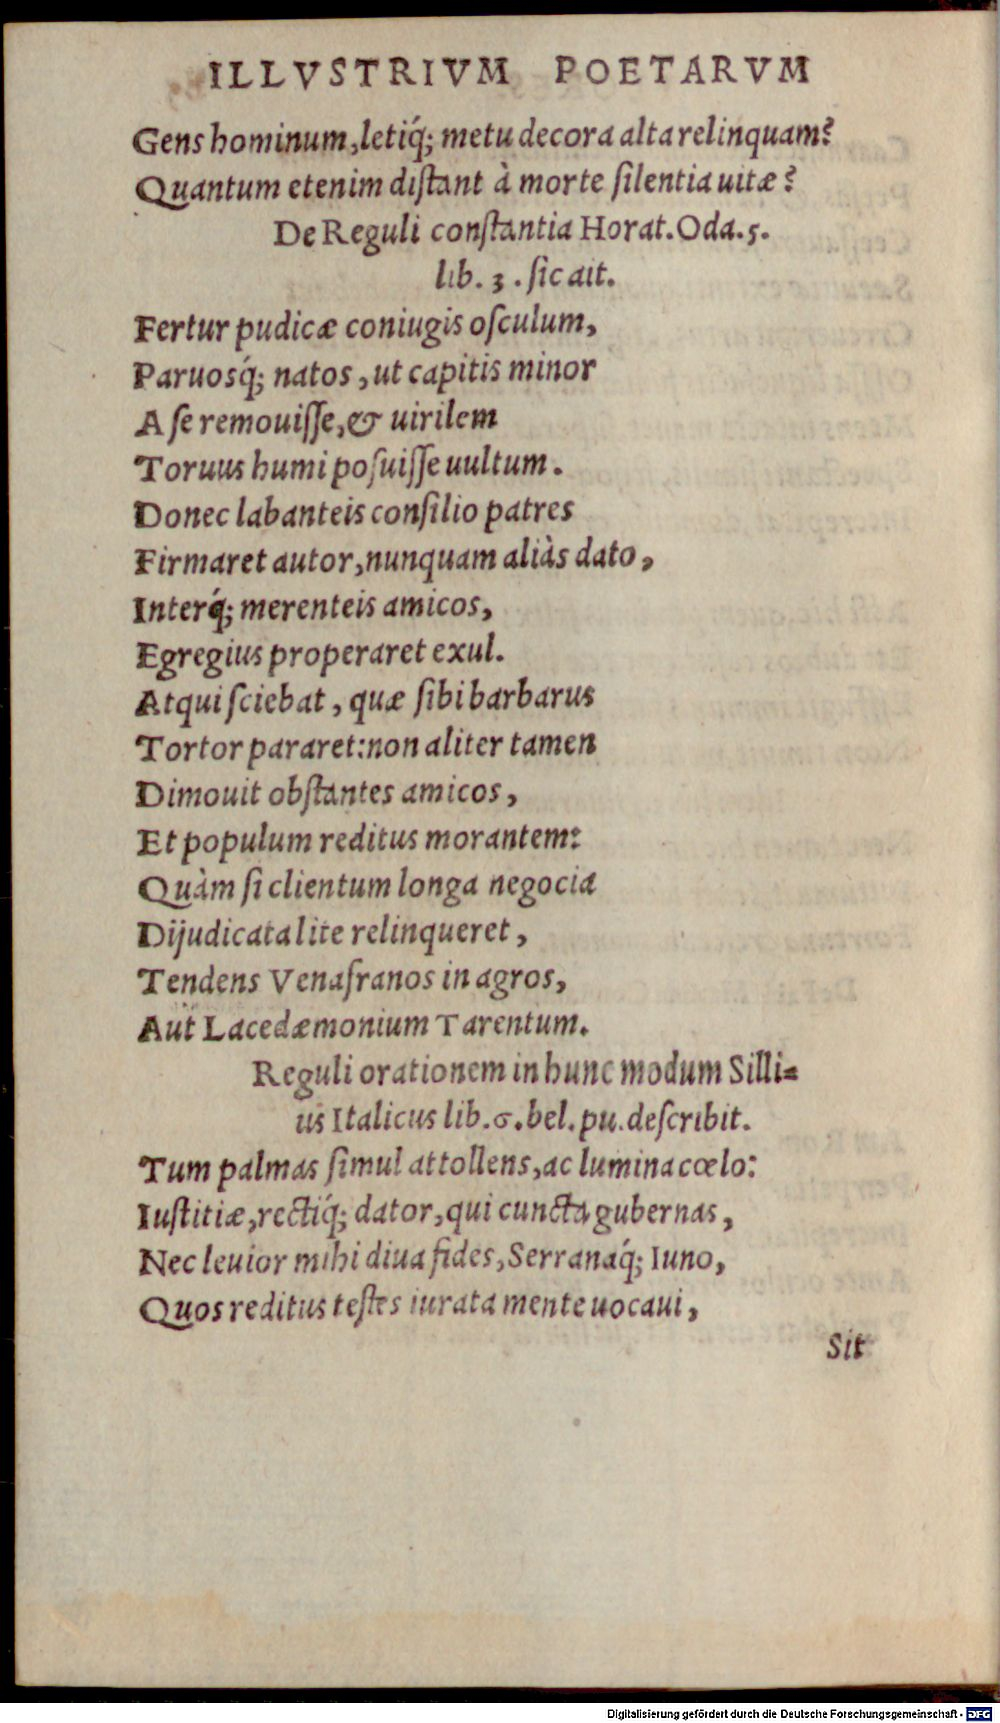 ILLVSTRIVM POETARVM
Gens hominum, letiq́; metu decora alta relinquam?
Quantum etenim diſtant à morte ſilentia uitæ?
De Reguli conſtantia Horat. Oda. 5.
lib. 3. ſic ait.
Fertur pudicæ coniugis oſculum,
Paruosq́; natos, ut capitis minor
A ſe remouiſſe, & uirilem
Toruus humi poſuiſſe uultum.
Donec labanteis conſilio patres
Firmaret autor, nunquam aliàs dato,
Interq́; merenteis amicos,
Egregius properaret exul.
Atqui ſciebat, quæ ſibi barbarus
Tortor pararet: non aliter tamen
Dimouit obſtantes amicos,
Et populum reditus morantem:
Quàm ſi clientum longa negocia
Dijudicata lite relinqueret,
Tendens Venafranos in agros,
Aut Lacedæmonium Tarentum.
Reguli orationem in hunc modum Silli=
us Italicus lib. 6. bel. pu. deſcribit.
Tum palmas ſimul attollens, ac lumina cœlo:
Iuſtitiæ, rectiq́; dator, qui cuncta gubernas,
Nec leuior mihi diua fides, Serranaq́; Iuno,
Quos reditus teſtes iurata mente uocaui,
Sit
Digitalisierung gefördert durch die Deutsche Forschungsgemeinschaft - DFG